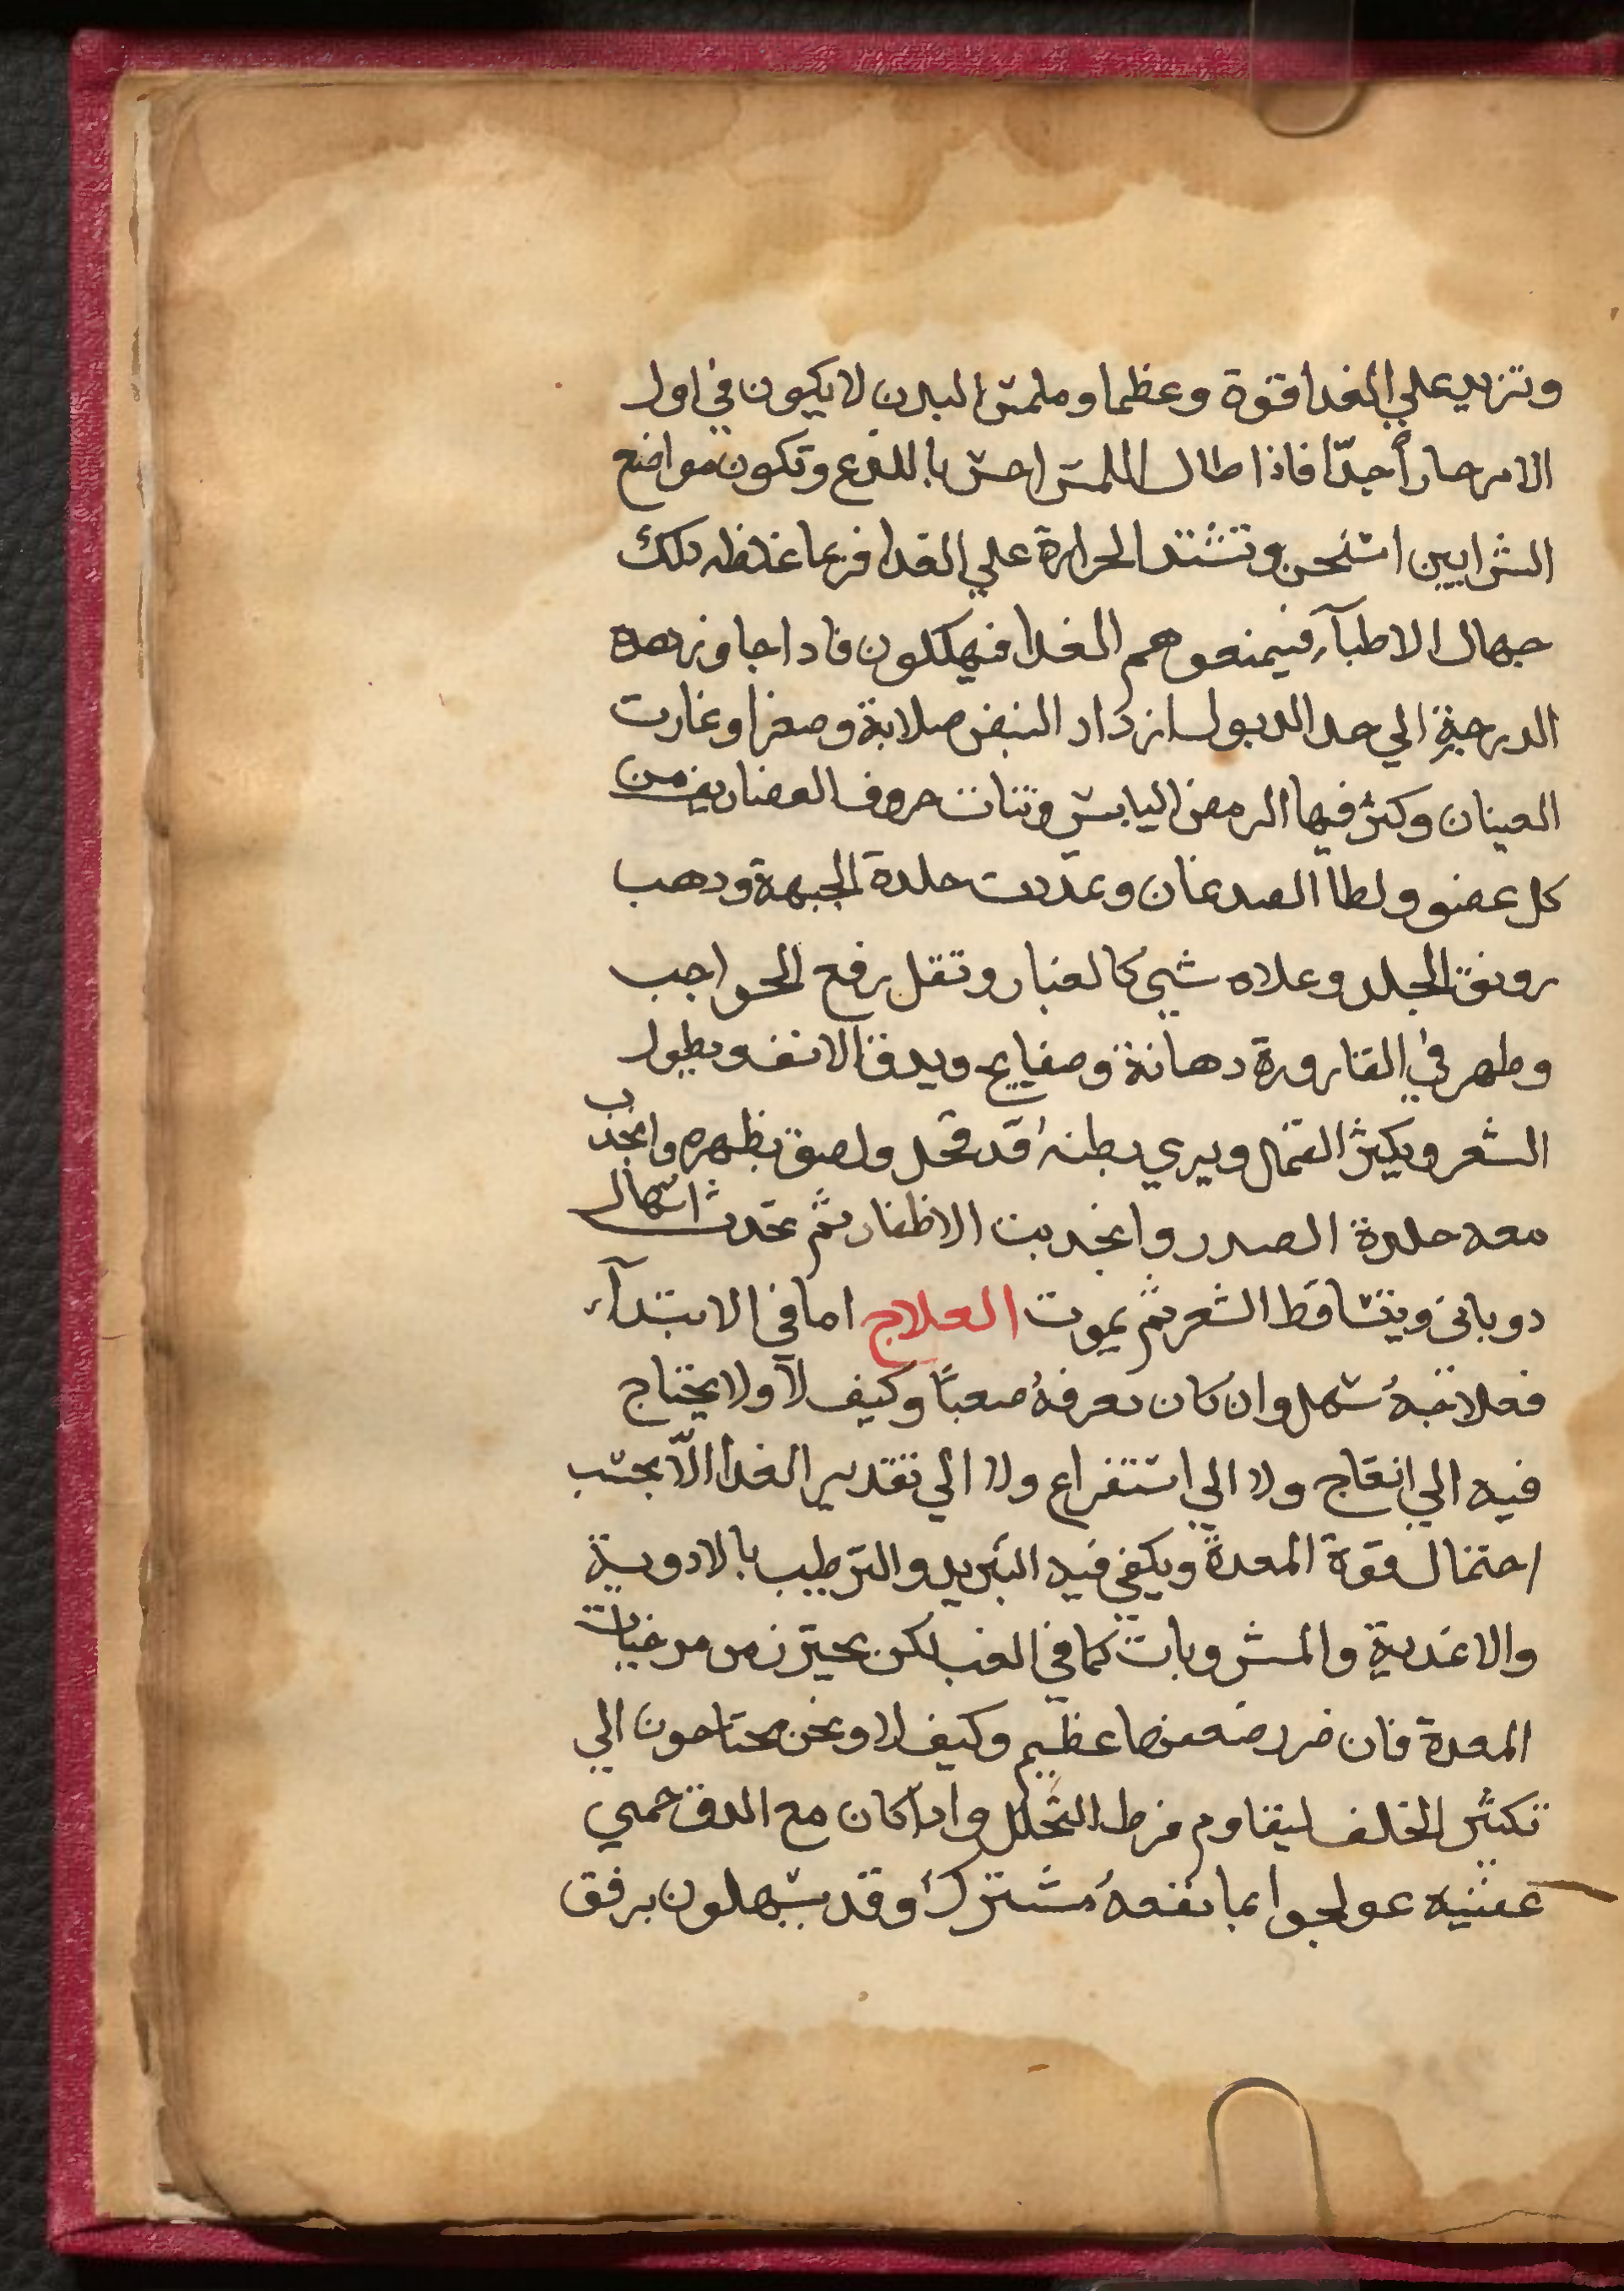 وتزيد علي الغدا قوة وعظما وملمس البدن لا يكون في اول
الامر حاراً جدّا فاذا طال اللمس احس باللدع وتكون مواضع
الشرايين اسخن وتشتد الحرارة علي الغدا فربما غلظه دلك
جهال الاطبآء فيمنعوهم الغدا فيهلكون فادا جاوز هده
الدرجة الي حد الدبول ازداد النبض صلابة وصغرا وغارت
العينان وكثر فيها الرمص اليابس ونتات حروف الغضاريف من
كل عضو ولطا الصدغان وتمددت جلدة الجبهة ودهب
رونق الجلد وعلاه شي كالغبار وتقل رفع الحواجب
وظهر في القارورة دهانة وصفايح ويدق الانف ويطول
الشعر ويكثر القمال ويري بطنه قد قحل ولصق بظهره وانجذب
معه جلدة الصدر وانجدبت الاظفار ثم تحدث اسهال
دوباني ويتساقط الشعر ثم يموت العلاج اما في الابتدآء
فعلاجه سهل وان كان معرفة صعبًا وكيف لا ولا يحتاج
فيه الي انضاج ولا الي استفراع ولا الي تقدير الغدا الّا بحسب
احتمال قوة المعدة ويكفي فيه التبريد والترطيب بالادوية
والاغدية والمشروبات كما في الغب لكن يحترز من مرخيات
المعدة فان ضرر ضعفها عظيم وكيف لا ونحن محتاجون الي
تكثير الخلف ليقاوم فرط التحلل وادا كان مع الدق حمي
عفنيه عولجوا بما نفعهُ مشترك وقد يسهلون برفق